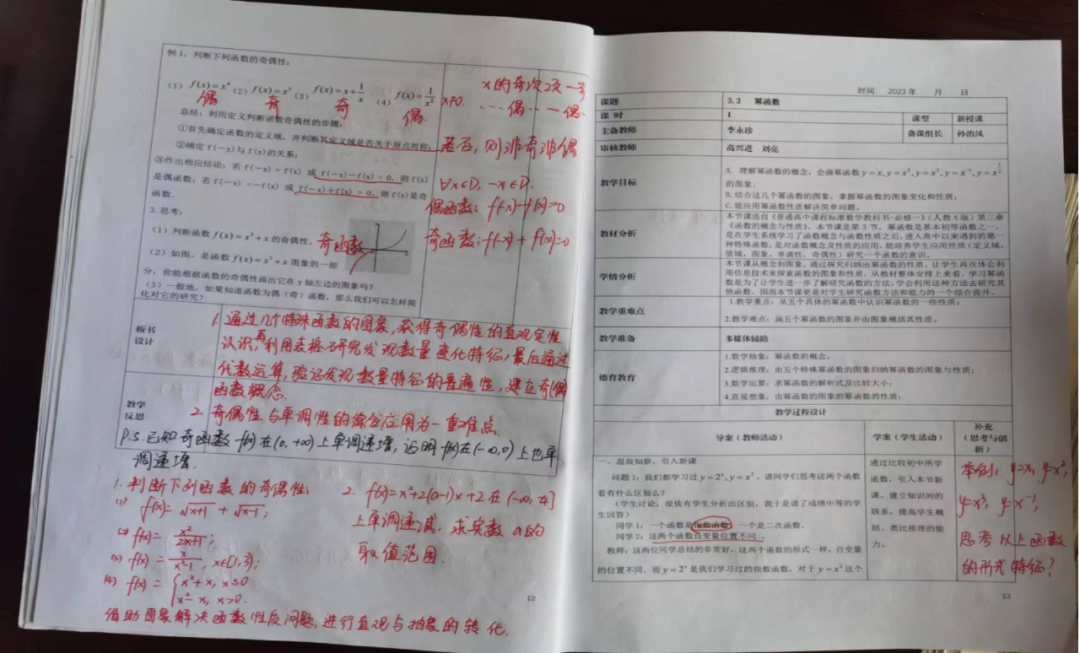 例1：判断下列函数的奇偶性：
（1）f(x)=x⁴（2）f(x)=x⁵（3）f(x)=x+1/x （4）f(x)=1/x²
偶 奇 奇 偶 x≠0.
x的奇次 一奇
偶 一偶
总结：利用定义判断函数奇偶性的步骤：
①首先确定函数的定义域，并判断其定义域是否关于原点对称；
若否，则非奇非偶
②确定f(-x)与f(x)的关系；
③作出相应结论：若f(-x)=f(x) 或 f(-x)-f(x)=0，则f(x)
是偶函数；若f(-x)=-f(x) 或 f(-x)+f(x)=0，则f(x)是奇
函数.
∀x∈D, -x∈D.
偶函数：f(-x)-f(x)=0
奇函数：f(-x)+f(x)=0
3.思考：
（1）判断函数f(x)=x³+x的奇偶性。
奇函数
（2）如图，是函数f(x)=x³+x图象的一部
分，你能根据函数的奇偶性画出它在y轴左边的图象吗？
（3）一般地，如果知道函数为偶（奇）函数，那么我们可以怎样简
化对它的研究？
板书
设计
1.通过几个特殊函数的图象，获得奇偶性的直观定性
认识，再利用表格研究发现数量变化特征，最后通过
代数运算，验证发现数量特征的普遍性，建立奇(偶)
函数概念.
教学
反思
2.奇偶性与单调性的综合应用为一重难点.
P.S.已知奇函数f(x)在(0,+∞)上单调递增，证明f(x)在(-∞,0)上也单
调递增.
1.判断下列函数的奇偶性：
(1) f(x)=√x+1 + √x-1;
(3) f(x)= , x∈[-1,3);
(4) f(x)={x²+x, x<0
x²-x, x>0.
2. f(x)=x²+2(a-1)x+2在(-∞,4]
上单调递减，求实数a的
取值范围.
借助图象解决函数性质问题，进行直观与抽象的转化.
12
时间：2023年 月 日
课题 3.3 幂函数
课时 1 课型 新授课
主备教师 李永珍 备课组长 孙治风
审核教师 高兴进 刘亮
教学目标
A. 理解幂函数的概念，会画幂函数y=x,y=x²,y=x³,y=x⁻¹,y=x^½
的图象；
B.结合这几个幂函数的图象，掌握幂函数的图象变化和性质；
C.能应用幂函数性质解决简单问题。
教材分析
本节课选自《普通高中课程标准数学教科书-必修一》（人教A版）第三章
《函数的概念与性质》，本节课是第3节，幂函数是基本初等函数之一，
是在学生系统学习了函数概念与函数性质之后，进入高中以来遇到的第一
种特殊函数，是对函数概念及性质的应用，能培养学生应用性质（定义域、
值域、图象、单调性、奇偶性）研究一个函数的意识。
学情分析
本节课从概念到图象，通过探究归纳出幂函数的性质，让学生再次体会利
用信息技术来探索函数的图象和性质，从教材整体安排上来看，学习幂函
数是为了让学生进一步了解研究函数的方法，学会利用这种方法去研究其
他函数，因而本节课更是对学生研究函数方法和能力的一个综合提升。
教学重难点
1.教学重点：从五个具体的幂函数中认识幂函数的一些性质；
2.教学难点：画五个幂函数的图象并由图象概括其性质。
教学准备 多媒体辅助
德育教育
1.数学抽象：幂函数的概念。
2.逻辑推理：由五个特殊幂函数的图象归纳幂函数的图象与性质；
3.数学运算：求幂函数的解析式及比较大小；
4.直观想象：由幂函数的图象的幂函数的性质；
教学过程设计
导案（教师活动） 学案（学生活动） 补充
（思考与创
新）
一、温故知新，引入新课
问题1：我们都学习过y=2ˣ,y=x²，请同学们思考这两个函数
看有什么区别么？
（学生讨论，很快有学生分析出区别，我于是请了成绩中等的学
生回答）
同学1：一个函数是指数函数，一个是二次函数.
同学2：这两个函数自变量位置不同；.
教师：这两位同学总结的非常好，这两个函数的形式一样，自变量
的位置不同，而y=2ˣ是我们学习过的指数函数，对于y=x²这个
通过比较初中所学
函数，引入本节新
课，建立知识间的
联系，提高学生概
括、类比推理的能
力。
y=x, y=x²,
y=x³, y=x⁻¹,
思考以上函数
的形式特征？
13